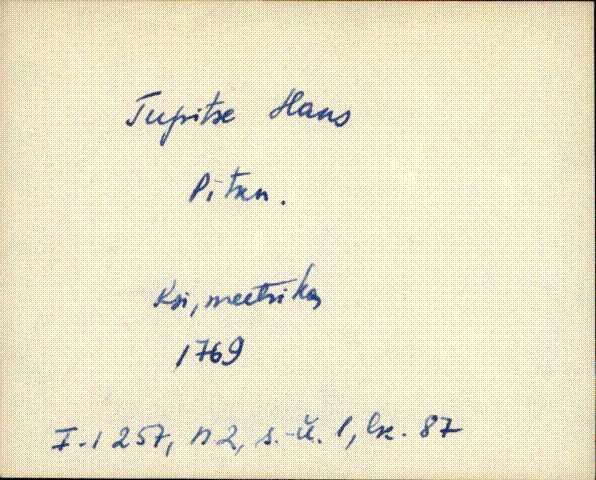 Tupitse Hans
Pitkn.
Ksi, meetrika,
1769
I-1257, n 2, s.-ü. 1, lk. 87